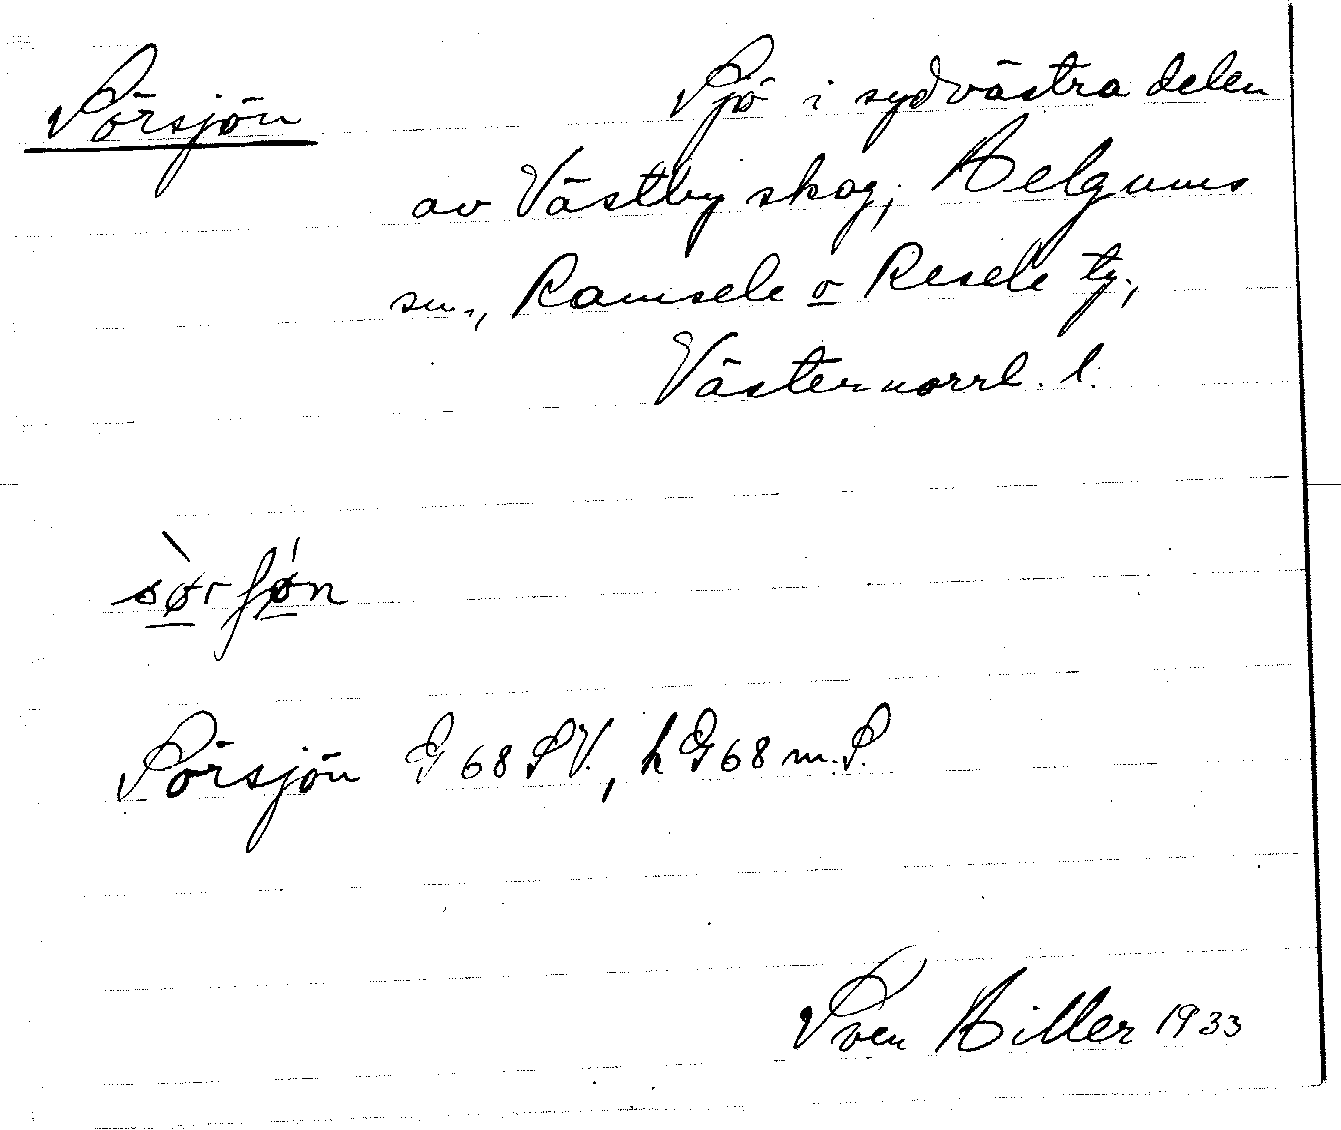 Sörsjön
Sjö i sydvästra delen
av Västby skog, Helgums
sn., Ramsele o Resele tg.,
Västernorrl. l.
sø̀rʃǿn
Sörsjön G 68 SV., h G 68 m. S.
Sven Hiller 1933